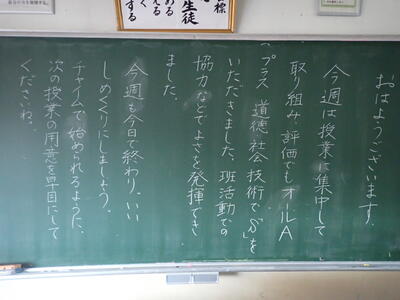 標
生徒
める
える
く
する
おはようございます。
今週は授業に集中して
取り組み、評価でもオールA
(プラス 道徳 社会 技術で を
いただきました。班活動での
協力などでよさを発揮でき
ました。
今週も今日で終わり。いい
しめくくりにしましょう。
チャイムで始められるように、
次の授業の用意を早目にして
くださいね。